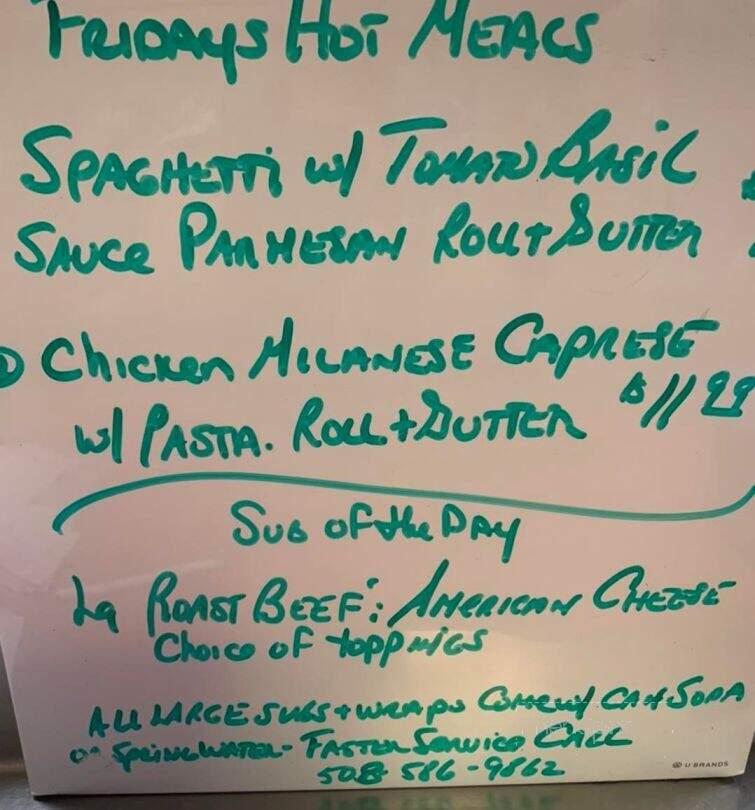 FRIDAYS HOT MEALS
SPAGHETTI w/ TOMATO BASIL
SAUCE PARMESAN ROLL + BUTTER
Chicken MILANESE CAPRESE
w/ PASTA. ROLL + BUTTER $11 99
SUB OF the DAY
Lg ROAST BEEF: AMERICAN CHEESE
Choice OF toppings
ALL LARGE SUBS + WRAPS COME w/ CAN SODA
OR SPRING WATER - FASTER SERVICE CALL
508 586-9862
U BRANDS